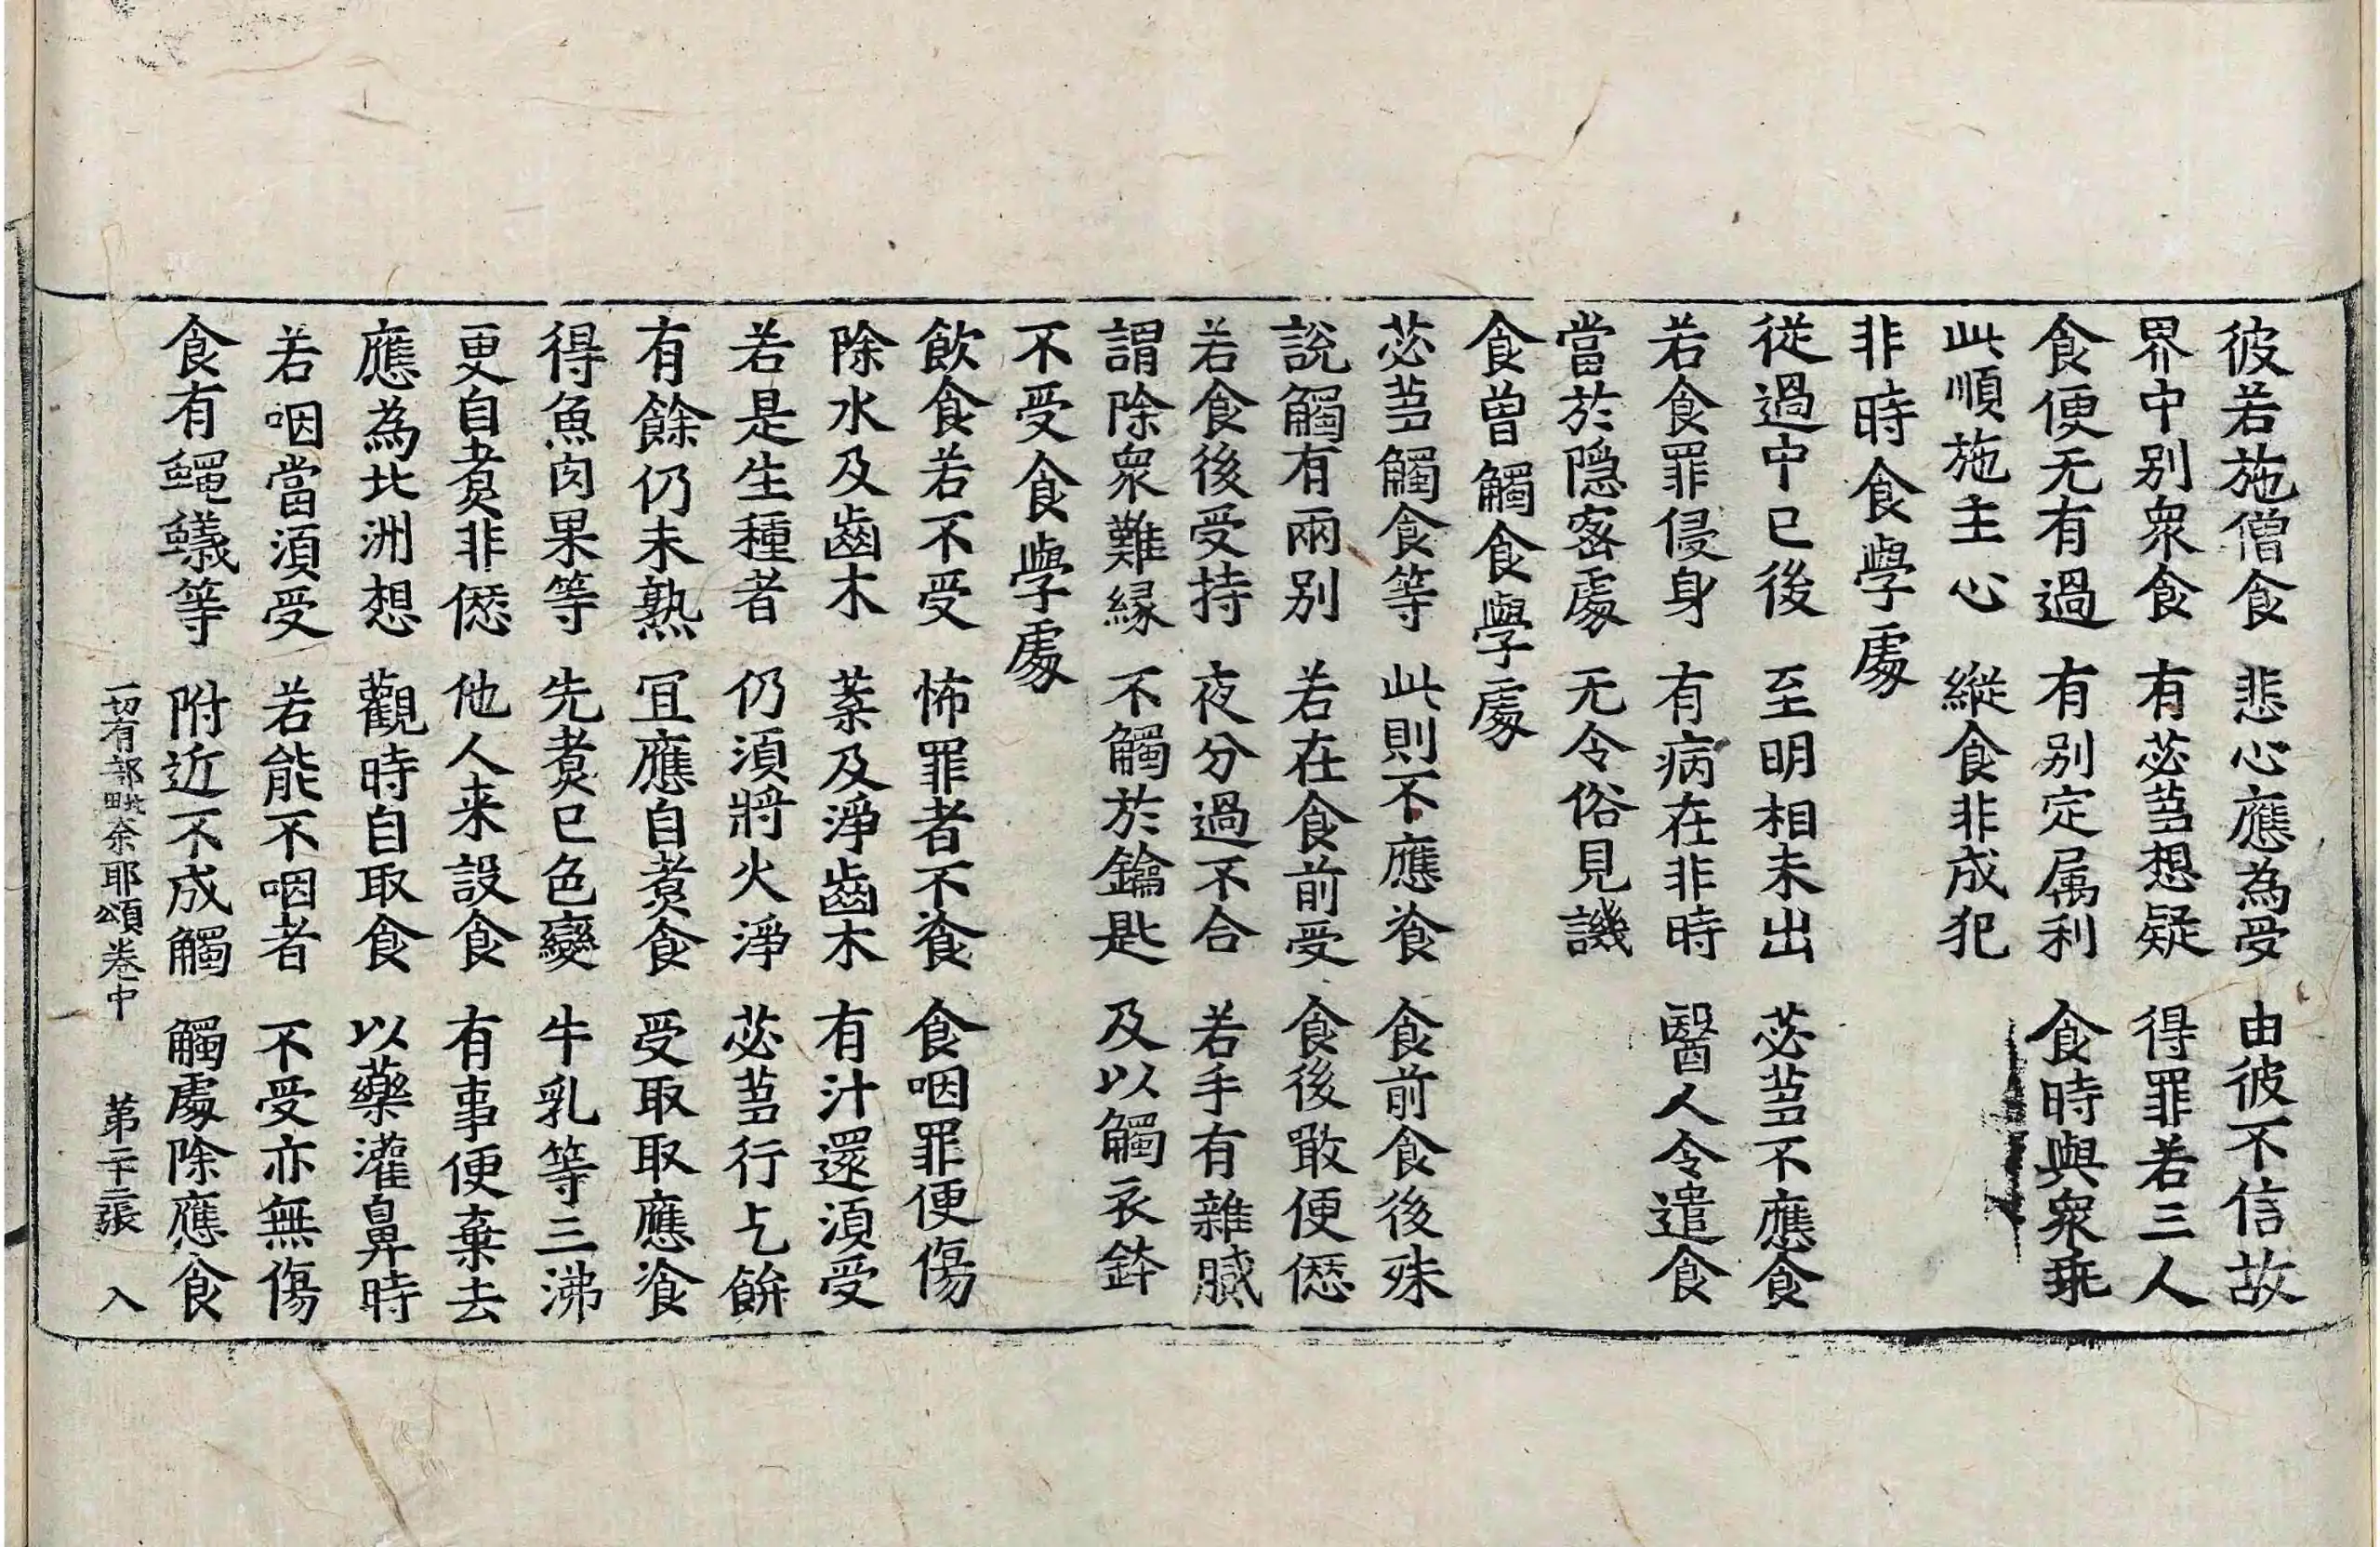 彼若施僧食 悲心應為受 由彼不信故
界中别衆食 有苾芻想疑 得罪若三人
食便无有過 有别定属利 食時與衆乖
此順施主心 縱食非成犯
非時食學處
從過中已後 至明相未出 苾芻不應食
若食罪侵身 有病在非時 醫人令遣食
當於隐密處 无令俗見譏
食曾觸食學處
苾芻觸食等 此則不應飡 食前食後殊
說觸有兩别 若在食前受 食後噉便愆
若食後受持 夜分過不合 若手有雜膩
謂除衆難緣 不觸於鑰匙 及以觸衣鉢
不受食學處
飲食若不受 怖罪者不飡 食咽罪便傷
除水及齒木 藥及淨齒木 有汁還須受
若是生種者 仍須將火淨 苾芻行乞餅
有餘仍未熟 冝應自煑食 受取取應飡
得魚肉果等 先煑已色變 牛乳等三沸
更自煑非愆 他人来設食 有事便棄去
應為北洲想 觀時自取食 以藥灌鼻時
若咽當須受 若能不咽者 不受亦無傷
食有蠅蟻等 附近不成觸 觸處除應食
一切有部毗奈耶頌卷中 第二十二張 入